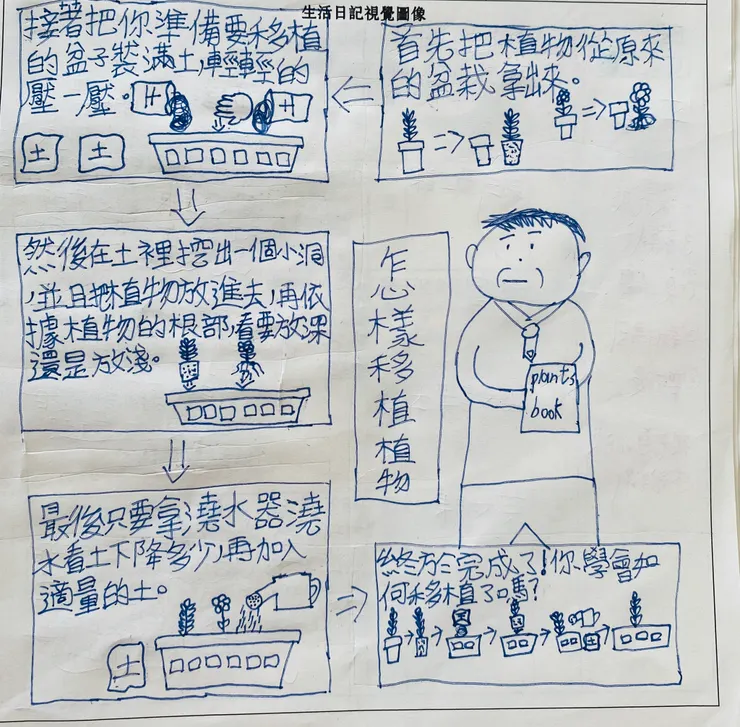 生活日記視覺圖像
怎樣移植植物
首先把植物從原來
的盆栽拿出來。
接著把你準備要移植
的盆子裝滿土,輕輕的
壓一壓。
土
土
土
土
然後在土裡挖出一個小洞
,並且把植物放進去,再依
據植物的根部,看要放深
還是放淺。
最後只要拿澆水器澆
水看土下降多少,再加入
適量的土。
土
終於完成了!你學會如
何移植了嗎?
plants
book